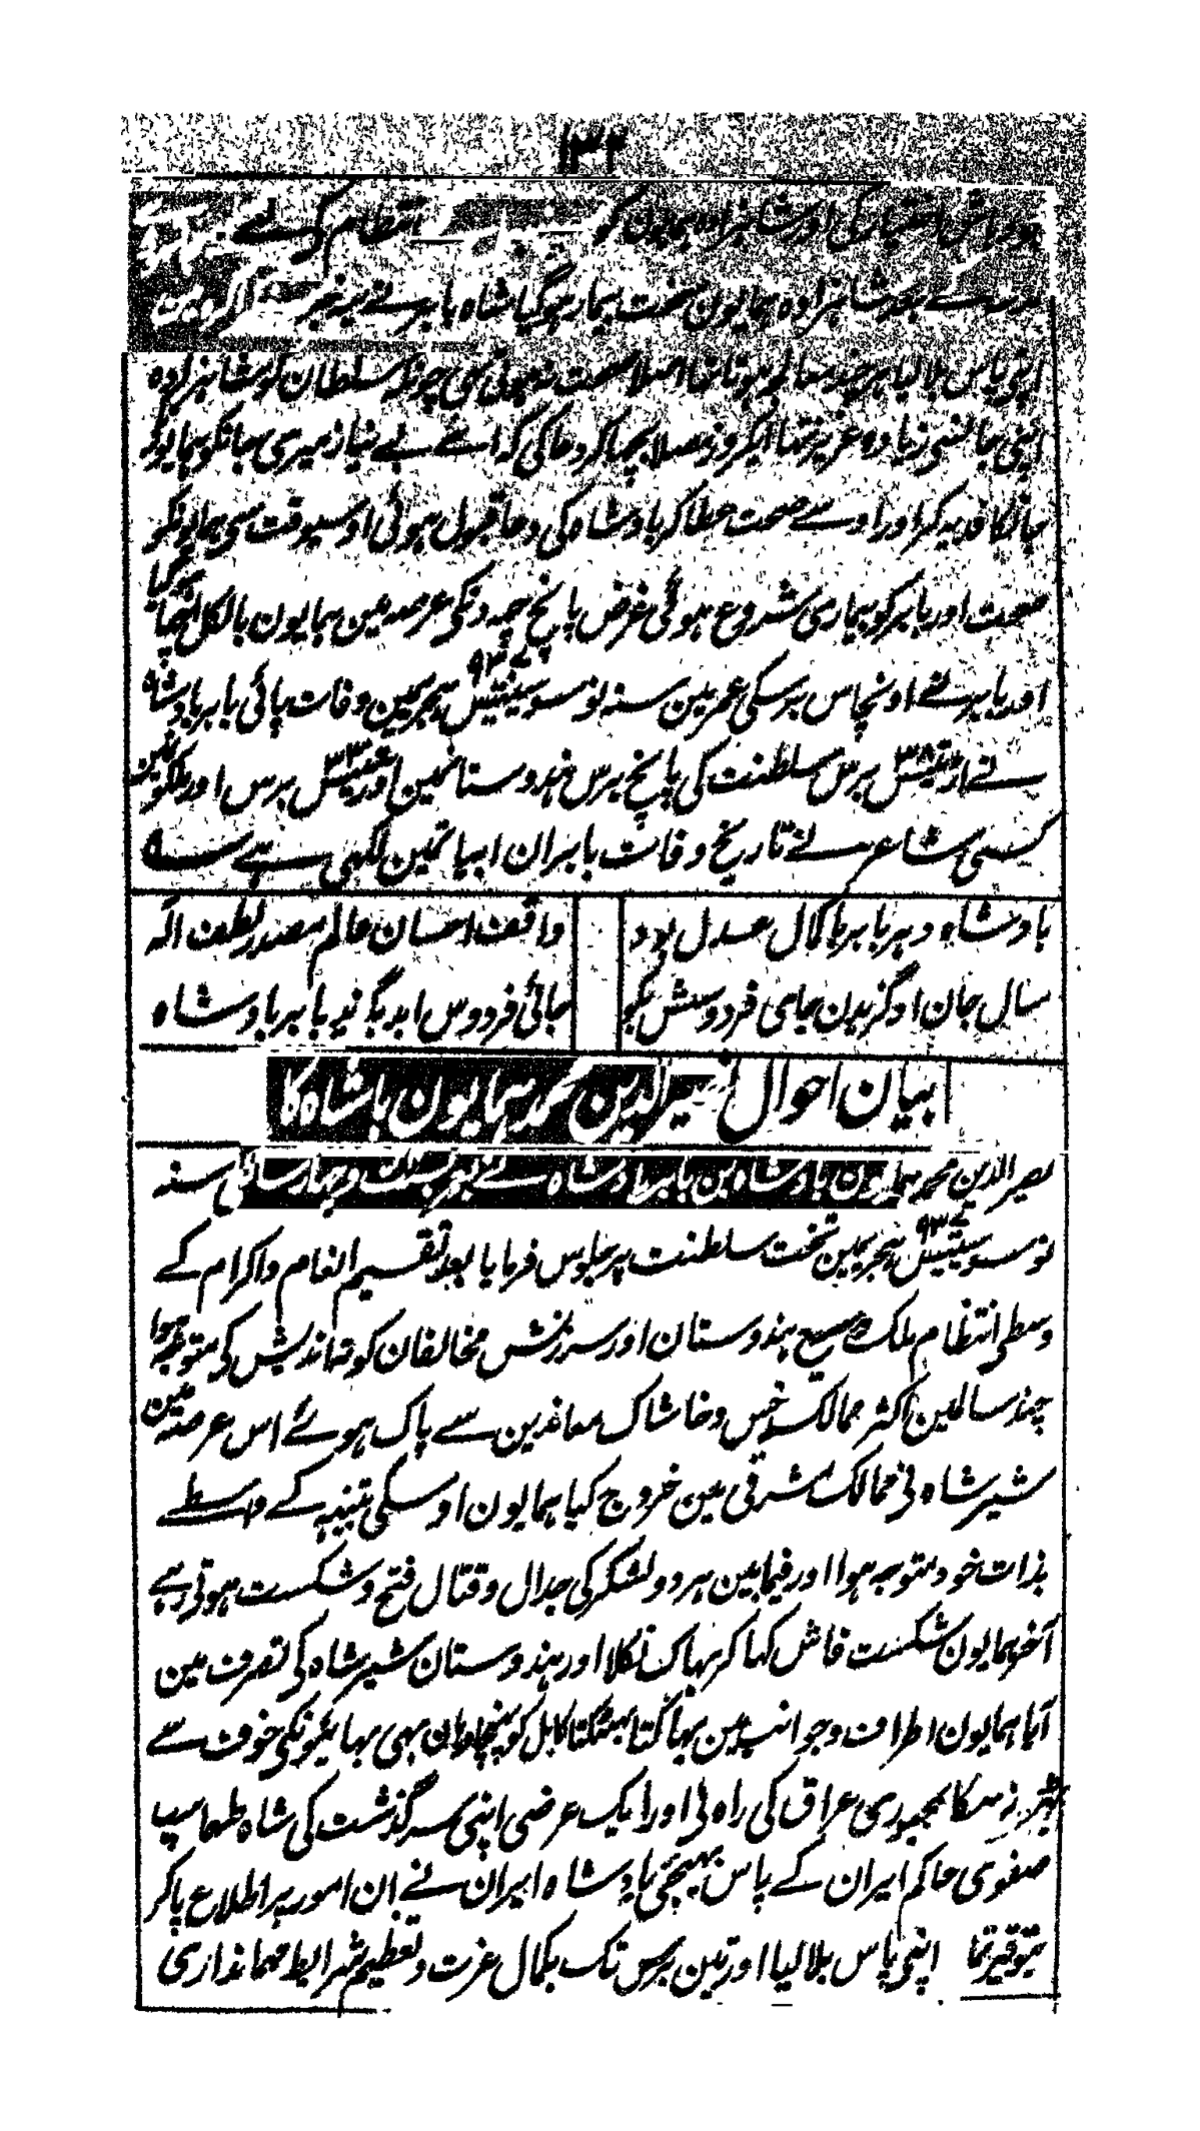 ۱۳۲
اختیار کی اور شاہزادہ ہمایون کو انتظام کے لئے
بعد شاہزادہ ہمایون سخت بیمار ہوگیا شاہ بابر نے یہ خبر آگرہ مین
اپنی پاس بلالیا ہرچند معالجہ ہوتا تھا اصلا صحت نہوتی تہی چونکہ سلطان کو شاہزادہ
اپنی جانسی زیادہ عزیز تہا ایکروز مصلا بچھا کر دعا کی کہ اے بے نیاز میری جانکو ہمایون
جانکا فدیہ کر اور اوسے صحت عطا کر بادشاہ کی دعا قبول ہوئی اوسیوقت سی ہمایونکو
صحت اور بابر کو بیماری شروع ہوئی غرض پانچ چہہ دنکی عرصہ مین ہمایون بالکل اچھا ہوگیا
اور بابر نے اونچاس برسکی عمر مین سنہ نو سو سینتیس ۹۳۷ ہجریمین وفات پائی بابر بادشاہ
نے اڑتیس ۳۸ برس سلطنت کی پانچ برس ہندوستانمین اور تینتیس ۳۳ برس اور ملکونمین
کسی شاعر نے تاریخ وفات بابر ان ابیاتمین لکھی ہے
بادشاہ دہر بابر با کمال عدل بود واقف احسان عالم مصدر لطف الہ
سال جان او گزیدن جامی فردوسش بگو جائی فردوس ابد بگزید بابر بادشاہ
بیان احوال نصیرالدین محمد ہمایون بادشاہ کا
نصیر الدین محمد ہمایون بادشاہ بن بابر بادشاہ نے بعمر بست و چہار سالگی سنہ
نو سو سینتیس ۹۳۷ ہجریمین تخت سلطنت پر جلوس فرمایا بعد تقسیم انعام و اکرام کے
وسطی انتظام ملک وسیع ہندوستان اور سرزنش مخالفان کوتہ اندیش کی متوجہ ہوا
چند سالمین اکثر ممالک خس و خاشاک معاندین سے پاک ہوئے اس عرصہ مین
شیر شاہ نی ممالک شرقی مین خروج کیا ہمایون اوسکی تنبیہ کے واسطے
بذات خود متوجہ ہوا اور فیمابین ہر دو لشکر کی جدال و قتال فتح و شکست ہوتی رہے
آخر ہمایون شکست فاش کہا کر بہاگ نکلا اور ہندوستان شیر شاہ کی تصرف مین
آیا ہمایون اطراف و جوانب مین بہاگتا بہٹکتا کابل کو پہنچا وہان بہی بہائیونکی خوف سے
ٹہر نہ سکا بمجبوری عراق کی راہ لی اور ایک عرضی اپنی سرگذشت کی شاہ طہماسپ
صفوی حاکم ایران کے پاس بہیجی بادشاہ ایران نے ان امور پر اطلاع پا کر
بتوقیر تما اپنی پاس بلا لیا اور تین برس تک بکمال عزت و تعظیم شرایط مہمانداری